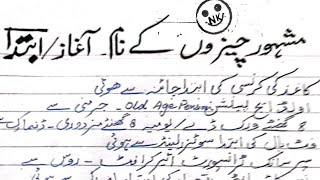 NK
مشہور چیزوں کے نام۔ آغاز/ابتدا
کاغذ کی کرنسی کی ابتدا چائنہ سے ہوئی
اولڈ ایج پینشن Old Age Pension۔ جرمنی سے
8 گھنٹے ورک ڈے / یومیہ 8 گھنٹے مزدوری۔ ڈنمارک سے
فٹ بال کی ابتدا سوئٹزرلینڈ سے ہوئی
سپر سانک ٹرانسپورٹ ائیر کرافٹ۔ روس سے